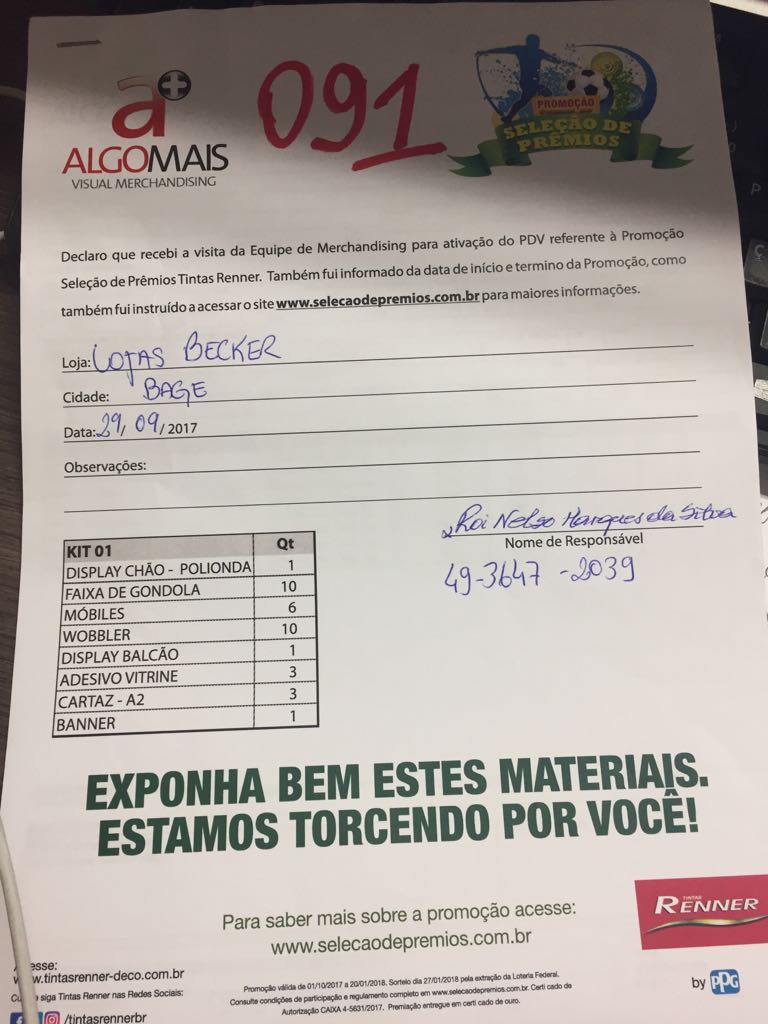 a+
ALGOMAIS
VISUAL MERCHANDISING
091
PROMOÇÃO
SELEÇÃO DE
PRÊMIOS
Declaro que recebi a visita da Equipe de Merchandising para ativação do PDV referente à Promoção
Seleção de Prêmios Tintas Renner. Também fui informado da data de início e termino da Promoção, como
também fui instruído a acessar o site www.selecaodepremios.com.br para maiores informações.
Loja: LOJAS BECKER
Cidade: BAGE
Data: 29/09/2017
Observações:
Roi Nelso Marques da Silva
Nome de Responsável
49-3647-2039
KIT 01 Qt
DISPLAY CHÃO - POLIONDA 1
FAIXA DE GONDOLA 10
MÓBILES 6
WOBBLER 10
DISPLAY BALCÃO 1
ADESIVO VITRINE 3
CARTAZ - A2 3
BANNER 1
EXPONHA BEM ESTES MATERIAIS.
ESTAMOS TORCENDO POR VOCÊ!
Para saber mais sobre a promoção acesse:
www.selecaodepremios.com.br
TINTAS
RENNER
by PPG
esse:
www.tintasrenner-deco.com.br
siga Tintas Renner nas Redes Sociais:
/tintasrennerbr
Promoção válida de 01/10/2017 a 20/01/2018. Sorteio dia 27/01/2018 pela extração da Loteria Federal.
Consulte condições de participação e regulamento completo em www.selecaodepremios.com.br. Certi cado de
Autorização CAIXA 4-5631/2017. Premiação entregue em certi cado de ouro.